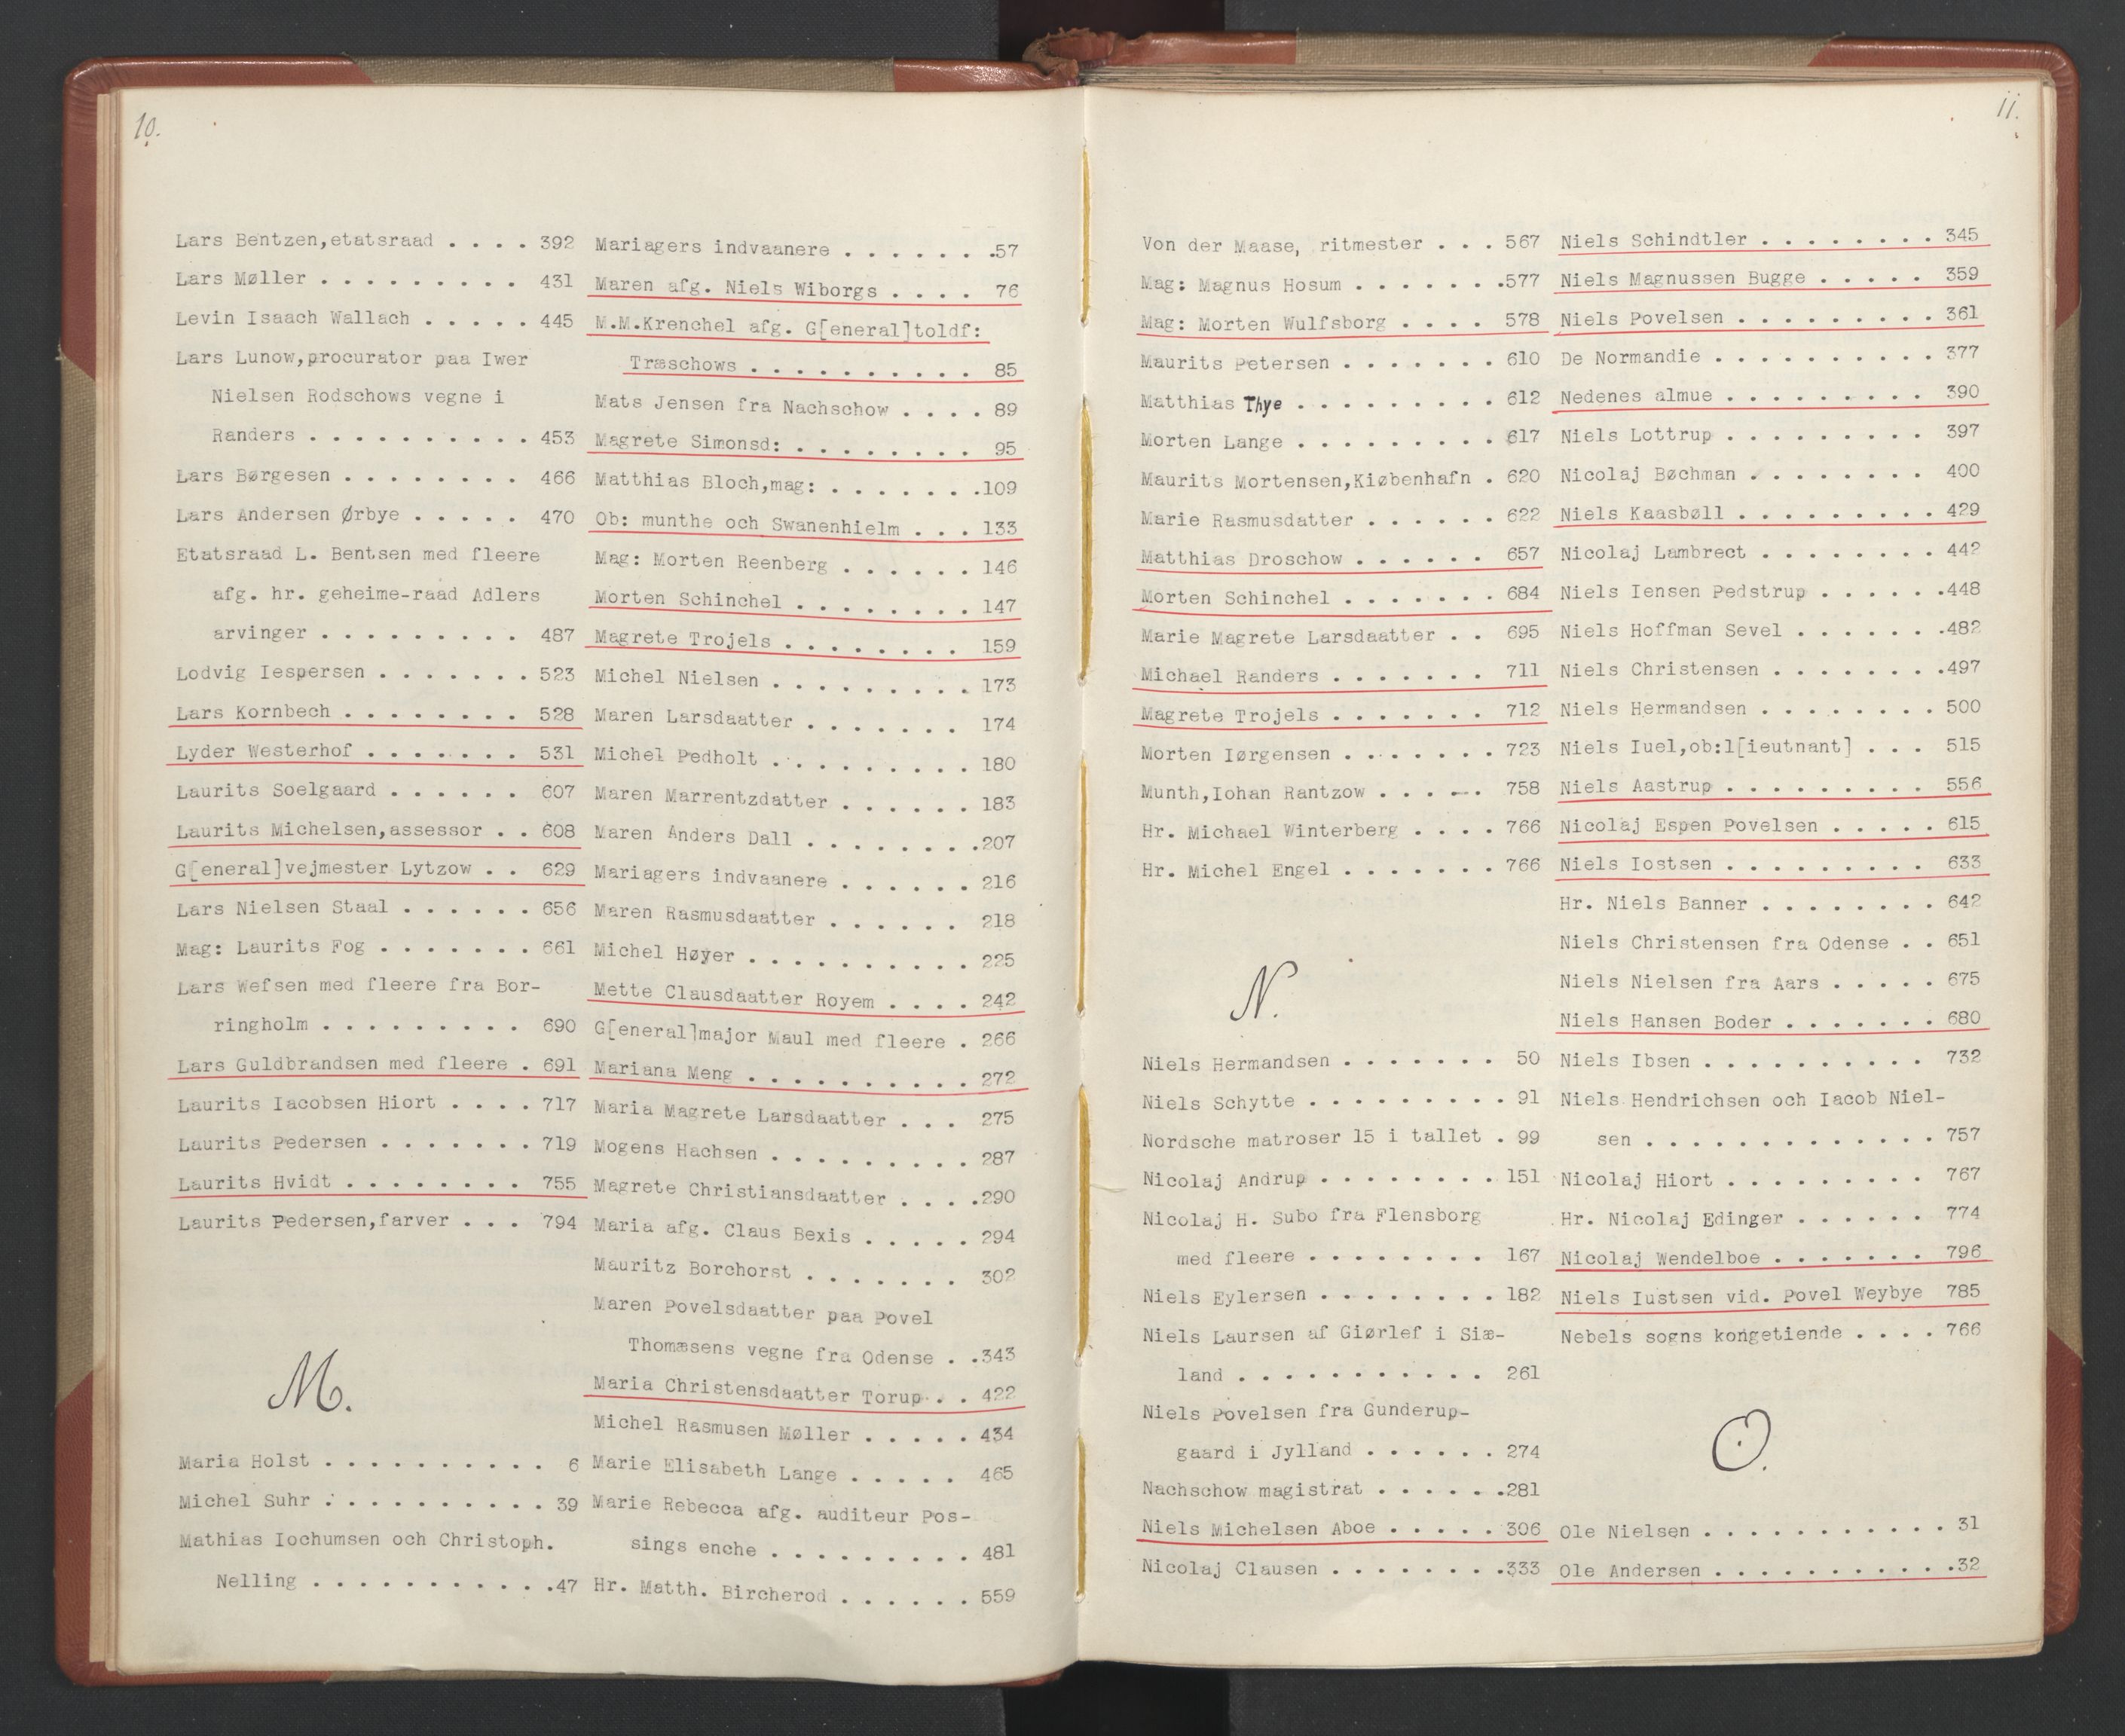 10.
Lars Bentzen,etatsraad . . . . 392
Lars Møller . . . . . . . . . 431
Levin Isaach Wallach . . . . . 445
Lars Lunow,procurator paa Iwer
Nielsen Rodschows vegne i
Randers . . . . . . . . . . 453
Lars Børgesen . . . . . . . . 466
Lars Andersen Ørbye . . . . . 470
Etatsraad L. Bentsen med fleere
afg. hr. geheime-raad Adlers
arvinger . . . . . . . . . 487
Lodvig Iespersen . . . . . . . 523
Lars Kornbech . . . . . . . . 528
Lyder Westerhof . . . . . . . 531
Laurits Soelgaard . . . . . . 607
Laurits Michelsen,assessor . . 608
G[eneral]vejmester Lytzow . . 629
Lars Nielsen Staal . . . . . . 656
Mag: Laurits Fog . . . . . . . 661
Lars Wefsen med fleere fra Bor-
ringholm . . . . . . . . . 690
Lars Guldbrandsen med fleere . 691
Laurits Iacobsen Hiort . . . . 717
Laurits Pedersen . . . . . . . 719
Laurits Hvidt . . . . . . . . 755
Laurits Pedersen,farver . . . 794
M.
Maria Holst . . . . . . . . . . 6
Michel Suhr . . . . . . . . . . 39
Mathias Iochumsen och Christoph.
Nelling . . . . . . . . . . .47
Mariagers indvaanere . . . . . . .57
Maren afg. Niels Wiborgs . . . . 76
M.M.Krenchel afg. G[eneral]toldf:
Træschows . . . . . . . . . . 85
Mats Jensen fra Nachschow . . . . 89
Magrete Simonsd: . . . . . . . . 95
Matthias Bloch,mag: . . . . . . .109
Ob: munthe och Swanenhielm . . . 133
Mag: Morten Reenberg . . . . . . 146
Morten Schinchel . . . . . . . . 147
Magrete Trojels . . . . . . . . 159
Michel Nielsen . . . . . . . . . 173
Maren Larsdaatter . . . . . . . 174
Michel Pedholt . . . . . . . . . 180
Maren Marrentzdatter . . . . . . 183
Maren Anders Dall . . . . . . . .207
Mariagers indvaanere . . . . . . 216
Maren Rasmusdaatter . . . . . . 218
Michel Høyer . . . . . . . . . . 225
Mette Clausdaatter Royem . . . . 242
G[eneral]major Maul med fleere . 266
Mariana Meng . . . . . . . . . . 272
Maria Magrete Larsdaatter . . . 275
Mogens Hachsen . . . . . . . . . 287
Magrete Christiansdaatter . . . .290
Maria afg. Claus Bexis . . . . . 294
Mauritz Borchorst . . . . . . . 302
Maren Povelsdaatter paa Povel
Thomæsens vegne fra Odense . .343
Maria Christensdaatter Torup . . 422
Michel Rasmusen Møller . . . . . 434
Marie Elisabeth Lange . . . . . 465
Marie Rebecca afg. auditeur Pos-
sings enche . . . . . . . . . 481
Hr. Matth. Bircherod . . . . . . 559
11.
Von der Maase, ritmester . . . 567
Mag: Magnus Hosum . . . . . . .577
Mag: Morten Wulfsborg . . . . 578
Maurits Petersen . . . . . . . 610
Matthias Thye . . . . . . . . . 612
Morten Lange . . . . . . . . . 617
Maurits Mortensen,Kiøbenhafn . 620
Marie Rasmusdatter . . . . . . 622
Matthias Droschow . . . . . . 657
Morten Schinchel . . . . . . . 684
Marie Magrete Larsdaatter . . 695
Michael Randers . . . . . . . 711
Magrete Trojels . . . . . . . 712
Morten Iørgensen . . . . . . . 723
Munth,Iohan Rantzow . . . . . 758
Hr. Michael Winterberg . . . . 766
Hr. Michel Engel . . . . . . . 766
N.
Niels Hermandsen . . . . . . . 50
Niels Schytte . . . . . . . . . 91
Nordsche matroser 15 i tallet . 99
Nicolaj Andrup . . . . . . . . 151
Nicolaj H. Subo fra Flensborg
med fleere . . . . . . . . 167
Niels Eylersen . . . . . . . . 182
Niels Laursen af Giørlef i Siæ-
land . . . . . . . . . . . 261
Niels Povelsen fra Gunderup-
gaard i Jylland . . . . . . 274
Nachschow magistrat . . . . . .281
Niels Michelsen Aboe . . . . . 306
Nicolaj Clausen . . . . . . . .333
Niels Schindtler . . . . . . . . 345
Niels Magnussen Bugge . . . . . 359
Niels Povelsen . . . . . . . . . 361
De Normandie . . . . . . . . . . 377
Nedenes almue . . . . . . . . . 390
Niels Lottrup . . . . . . . . . 397
Nicolaj Bøchman . . . . . . . . 400
Niels Kaasbøll . . . . . . . . . 429
Nicolaj Lambrect . . . . . . . . 442
Niels Iensen Pedstrup . . . . . .448
Niels Hoffman Sevel . . . . . . .482
Niels Christensen . . . . . . . .497
Niels Hermandsen . . . . . . . . 500
Niels Iuel,ob:l[ieutnant] . . . 515
Niels Aastrup . . . . . . . . . 556
Nicolaj Espen Povelsen . . . . . 615
Niels Iostsen . . . . . . . . . 633
Hr. Niels Banner . . . . . . . . 642
Niels Christensen fra Odense . . 651
Niels Nielsen fra Aars . . . . . 675
Niels Hansen Boder . . . . . . . 680
Niels Ibsen . . . . . . . . . . 732
Niels Hendrichsen och Iacob Niel-
sen . . . . . . . . . . . . . 757
Nicolaj Hiort . . . . . . . . . 767
Hr. Nicolaj Edinger . . . . . . 774
Nicolaj Wendelboe . . . . . . . 796
Niels Iustsen vid. Povel Weybye 785
Nebels sogns kongetiende . . . . 766
O.
Ole Nielsen . . . . . . . . . . . 31
Ole Andersen . . . . . . . . . . .32